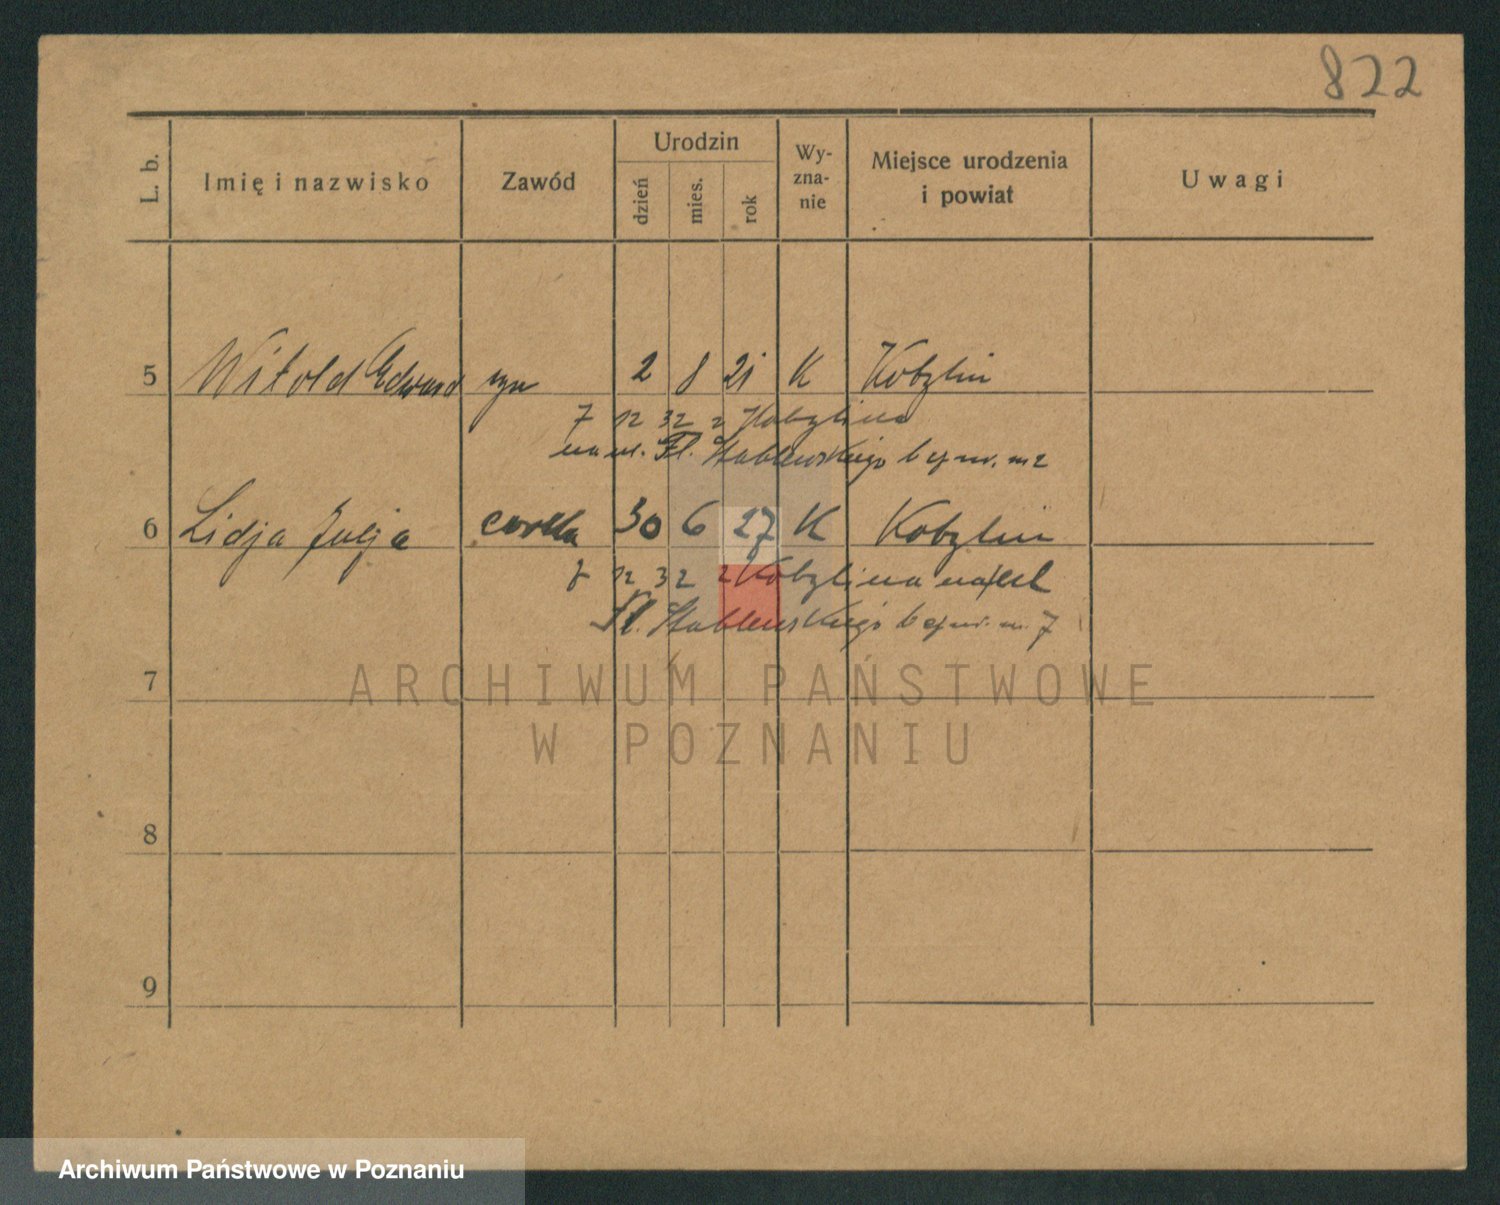 822
L. b.
Imię i nazwisko
Zawód
Urodzin
dzień
mies.
rok
Wy-
zna-
nie
Miejsce urodzenia
i powiat
Uwagi
5 Witold Edward syn 2 8 21 K Kobylin
7 12 32 z Kobylina
na ul. Fl. Stablewskiego
6 Lidja Julja corka 30 6 27 K Kobylin
7 12 32 z Kobylina na ul
Fl. Stablewskiego
7
ARCHIWUM PAŃSTWOWE
W POZNANIU
8
9
Archiwum Państwowe w Poznaniu